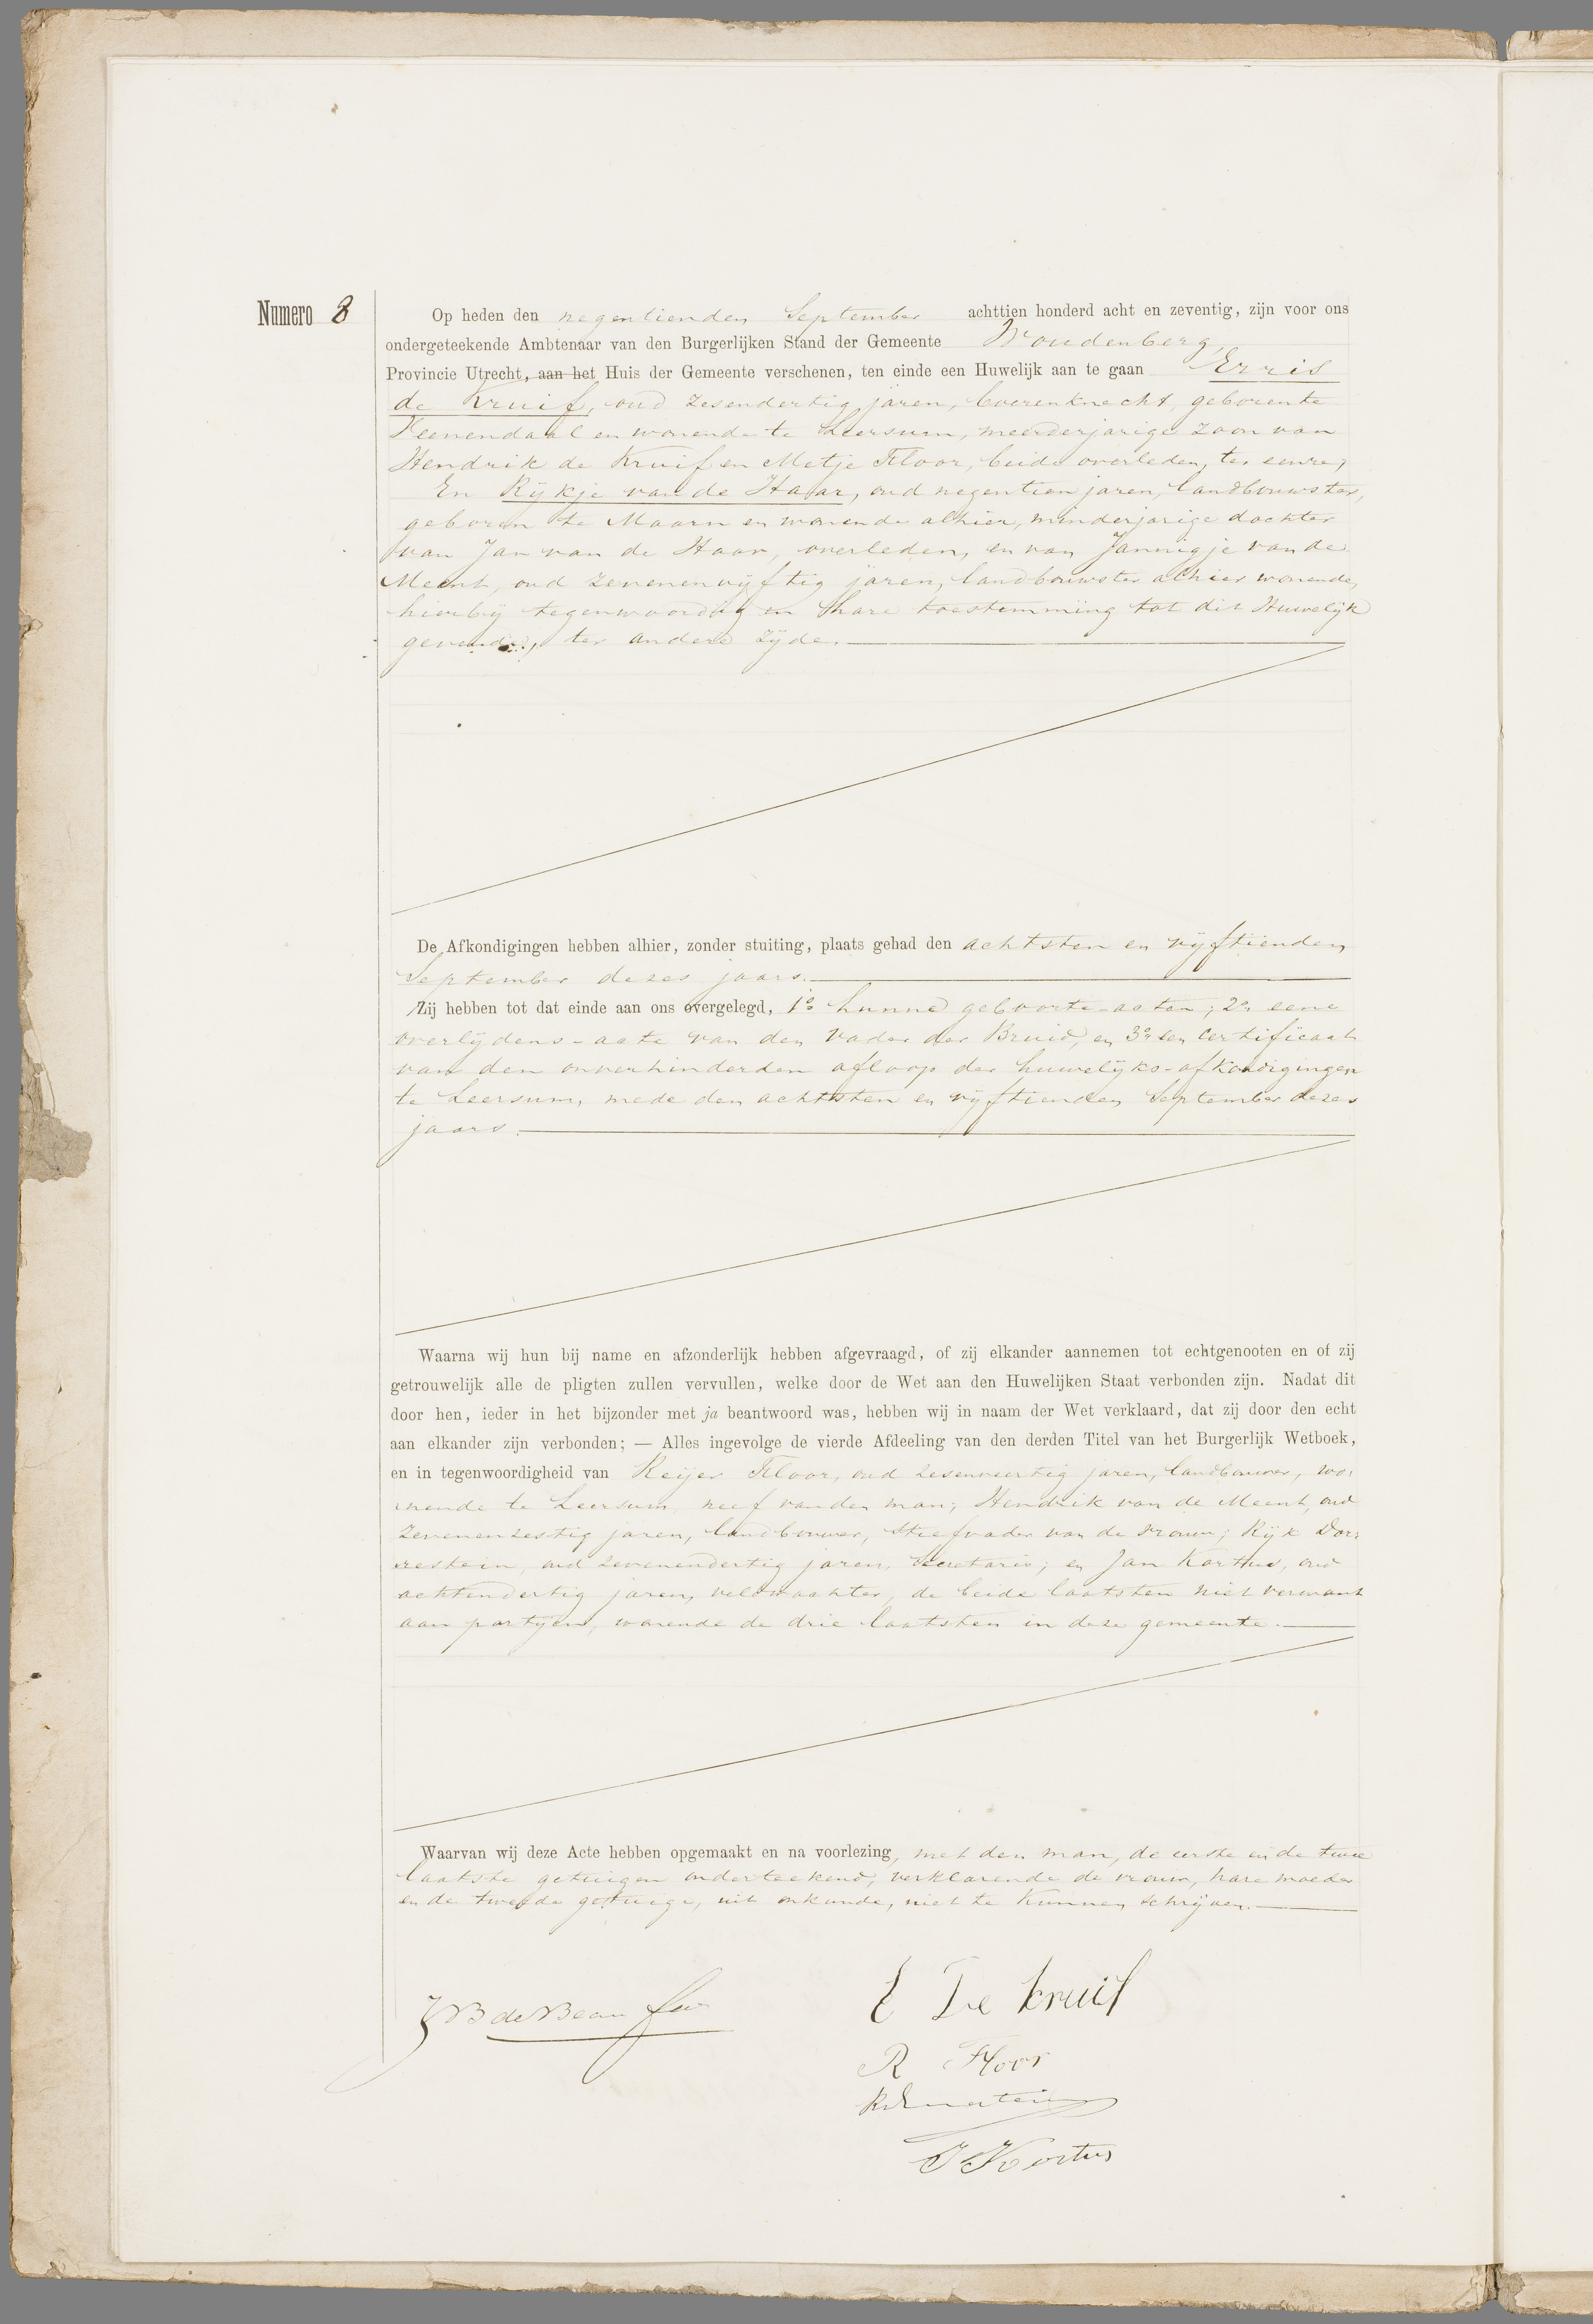 Numero 8
Op heden den negentienden September achttien honderd acht en zeventig, zijn voor ons
ondergeteekende Ambtenaar van den Burgerlijken Stand der Gemeente Woudenberg,
Provincie Utrecht, aan het Huis der Gemeente verschenen, ten einde een Huwelijk aan te gaan Erris
de Kruif, oud zesendertig jaren, boerenknecht, geboren te
Veenendaal en wonende te Leersum, meerderjarige zoon van
Hendrik de Kruif en Metje Floor, beide overleden, ter eenre,
En Rijkje van de Haar, oud negentien jaren, landbouwster,
geboren te Maarn en wonende alhier, minderjarige dochter
van Jan van de Haar, overleden, en van Jannigje van de
Meent, oud zevenenvijftig jaren, landbouwster alhier wonende,
hierbij tegenwoordig en hare toestemming tot dit Huwelijk
gevende, ter andere zijde.
De Afkondigingen hebben alhier, zonder stuiting, plaats gehad den achtsten en vijftienden
September dezes jaars.
Zij hebben tot dat einde aan ons overgelegd, 1o hunne geboorte-acten; 2o eene
overlijdens-acte van den vader der Bruid, en 3o een certificaat
van den onverhinderden afloop der huwelijks-afkondigingen
te Leersum, mede den achtsten en vijftienden September dezes
jaars.
Waarna wij hun bij name en afzonderlijk hebben afgevraagd, of zij elkander aannemen tot echtgenooten en of zij
getrouwelijk alle de pligten zullen vervullen, welke door de Wet aan den Huwelijken Staat verbonden zijn. Nadat dit
door hen, ieder in het bijzonder met ja beantwoord was, hebben wij in naam der Wet verklaard, dat zij door den echt
aan elkander zijn verbonden; — Alles ingevolge de vierde Afdeeling van den derden Titel van het Burgerlijk Wetboek,
en in tegenwoordigheid van Reijer Floor, oud zesenveertig jaren, landbouwer, wo-
nende te Leersum, neef van den man; Hendrik van de Meent, oud
zevenenzestig jaren, landbouwer, stiefvader van de vrouw; Rijk Dor-
restein, oud zevenendertig jaren, secretaris; en Jan Kortus, oud
achtendertig jaren, veldwachter, de beide laatsten niet vermant
aan partijen, wonende de drie laatsten in deze gemeente.
Waarvan wij deze Acte hebben opgemaakt en na voorlezing, met den man, de eerste en de twee
laatste getuigen onderteekend, verklarende de vrouw, hare moeder
en de tweede getuige, uit onkunde, niet te kunnen schrijven.
JB de Beaufort
E De Kruif
R Floor
RDorrestein
J Kortus